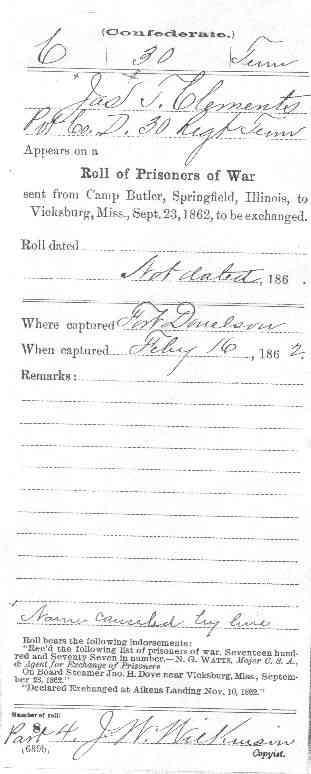 (Confederate.)
C 30 Tenn
Jas T. Clements
Pvt Co. D. 30 Regt Tenn
Appears on a
Roll of Prisoners of War
sent from Camp Butler, Springfield, Illinois, to
Vicksburg, Miss., Sept. 23, 1862, to be exchanged.
Roll dated
Not dated, 186 .
Where captured Fort Donelson
When captured Feby 16, 1862.
Remarks:
Name canceled by line
Roll bears the following indorsements:
"Rec'd the following list of prisoners of war, Seventeen hund-
red and Seventy Seven in number.—N. G. WATTS, Major C. S. A.,
& Agent for Exchange of Prisoners
On Board Steamer Jno. H. Dove near Vicksburg, Miss., Septem-
ber 23, 1862."
"Declared Exchanged at Aikens Landing Nov. 10, 1862."
Number of roll:
8,
Part 4. J. W. Wickmsin
(689b) Copyist.